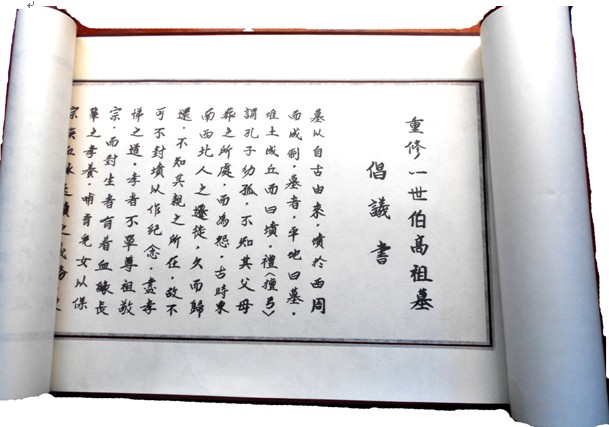 重修一世伯高祖墓
倡議書
墓从自古由来，墳於西周
而成制，墓者，平地曰墓，
堆土成丘而曰墳，禮〈檀弓〉
謂孔子幼孤，不知其父母
葬之所處，而為怨，古時東
南西北人之遷徙，久而歸
還，不知其親之所在，故不
可不封墳以作紀念，盡孝
悌之道，孝者不單尊祖敬
宗，而對生者有着血緣長
輩之孝養，哺育兒女以保
宗族血脉延續之